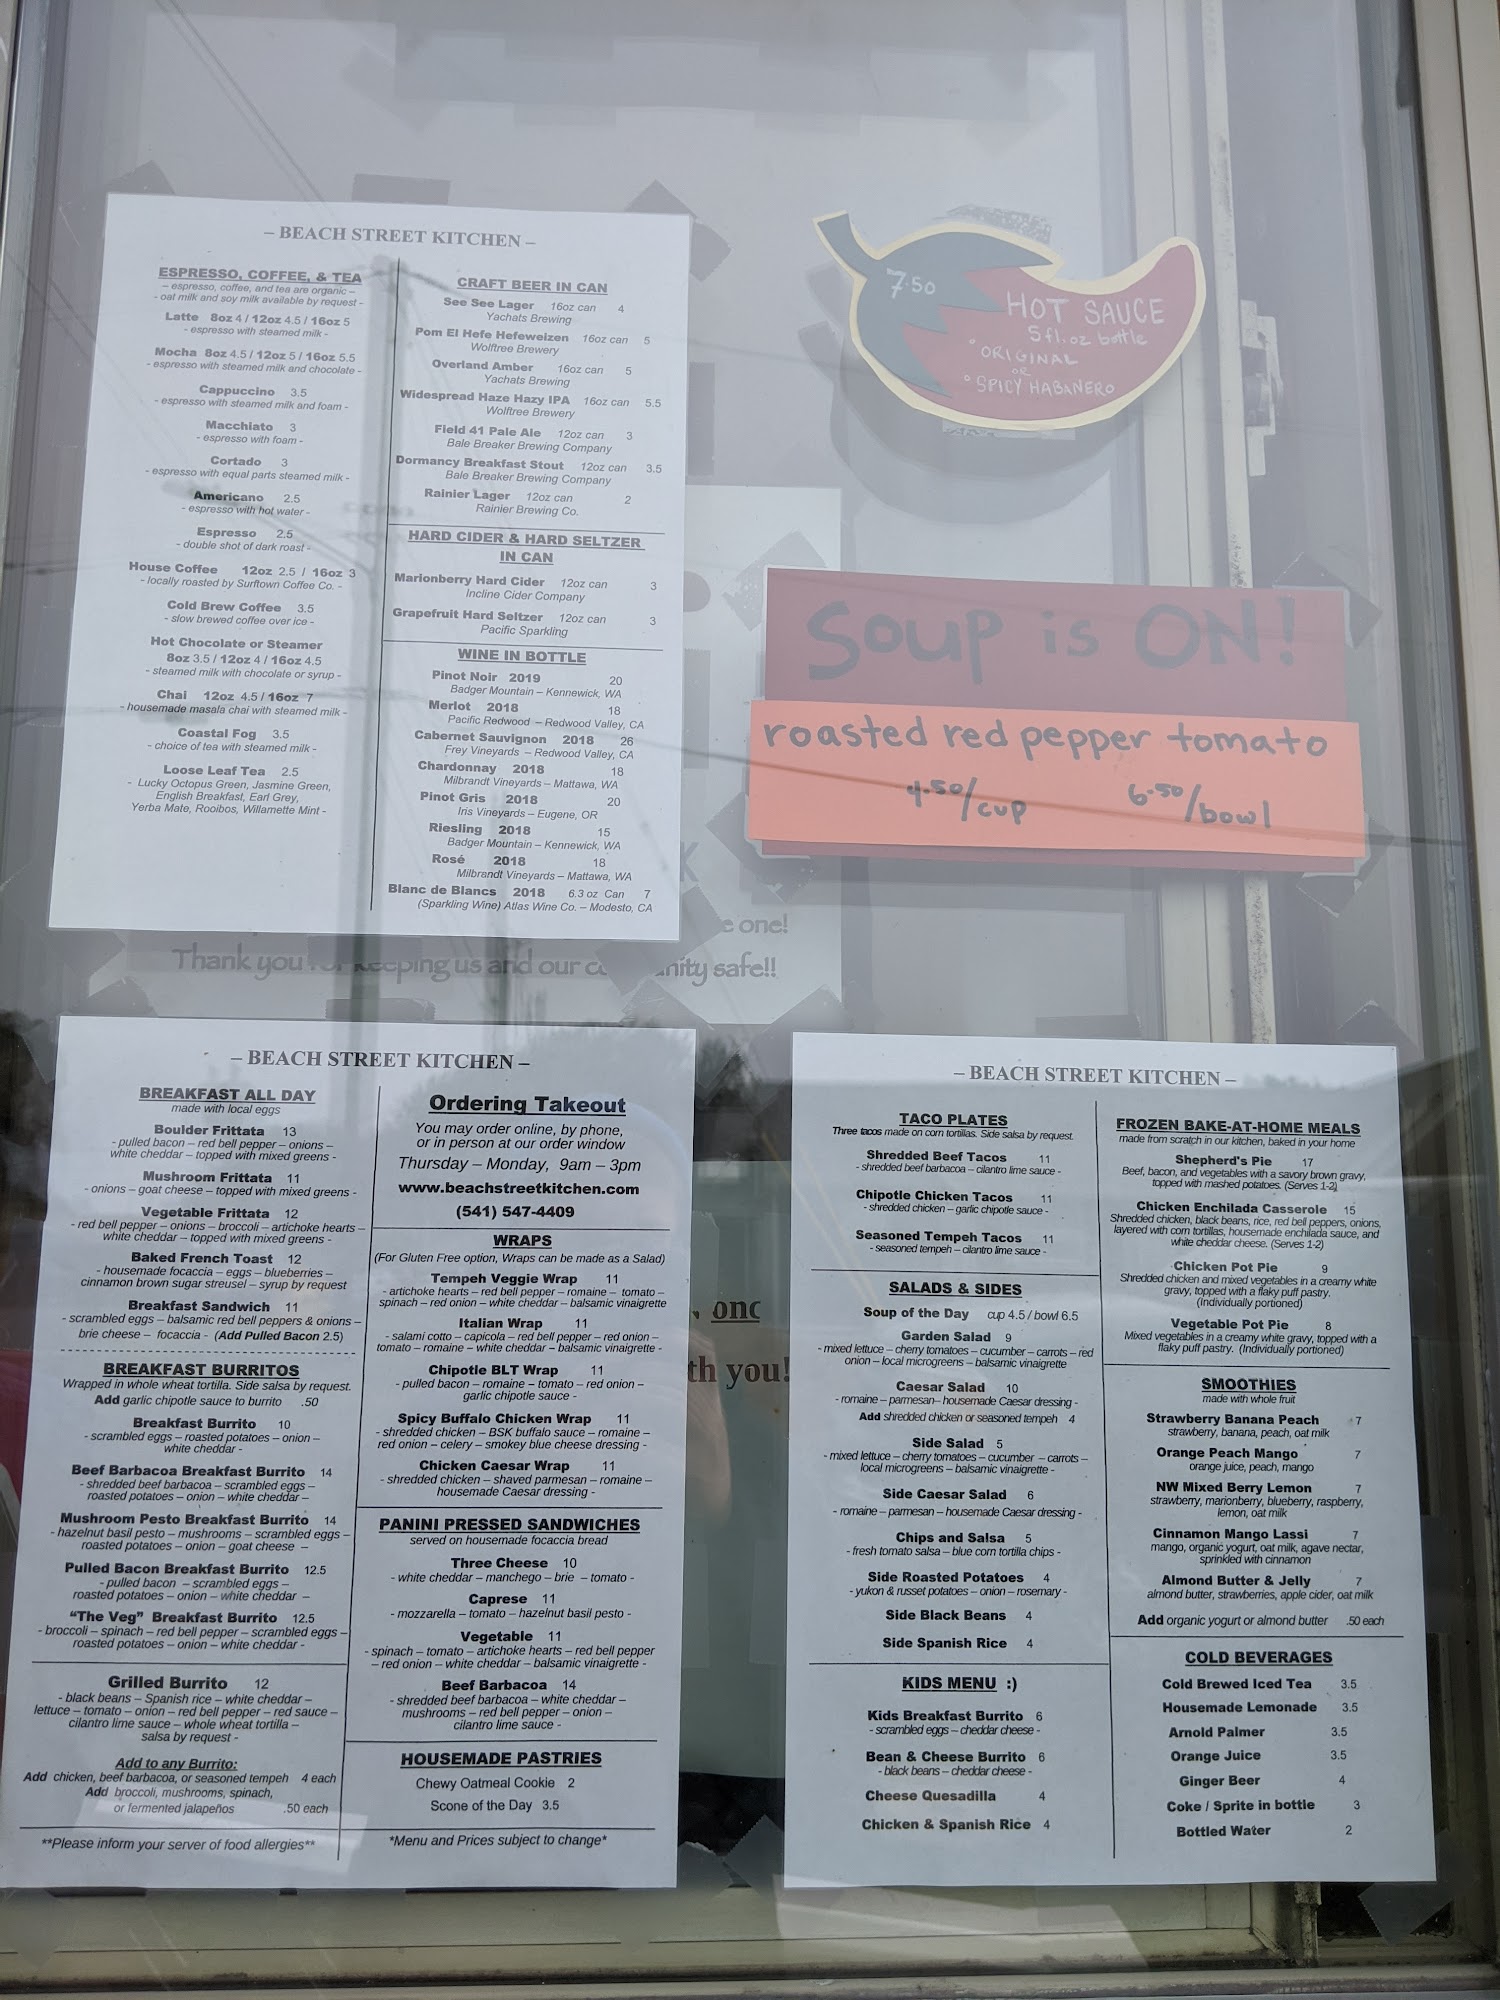 – BEACH STREET KITCHEN –
ESPRESSO, COFFEE, & TEA
– espresso, coffee, and tea are organic –
- oat milk and soy milk available by request -
Latte 8oz 4 / 12oz 4.5 / 16oz 5
- espresso with steamed milk -
Mocha 8oz 4.5 / 12oz 5 / 16oz 5.5
- espresso with steamed milk and chocolate -
Cappuccino 3.5
- espresso with steamed milk and foam -
Macchiato 3
- espresso with foam -
Cortado 3
- espresso with equal parts steamed milk -
Americano 2.5
- espresso with hot water -
Espresso 2.5
- double shot of dark roast -
House Coffee 12oz 2.5 / 16oz 3
- locally roasted by Surftown Coffee Co. -
Cold Brew Coffee 3.5
- slow brewed coffee over ice -
Hot Chocolate or Steamer
8oz 3.5 / 12oz 4 / 16oz 4.5
- steamed milk with chocolate or syrup -
Chai 12oz 4.5 / 16oz 7
- housemade masala chai with steamed milk -
Coastal Fog 3.5
- choice of tea with steamed milk -
Loose Leaf Tea 2.5
- Lucky Octopus Green, Jasmine Green,
English Breakfast, Earl Grey,
Yerba Mate, Rooibos, Willamette Mint -
CRAFT BEER IN CAN
See See Lager 16oz can 4
Yachats Brewing
Pom El Hefe Hefeweizen 16oz can 5
Wolftree Brewery
Overland Amber 16oz can 5
Yachats Brewing
Widespread Haze Hazy IPA 16oz can 5.5
Wolftree Brewery
Field 41 Pale Ale 12oz can 3
Bale Breaker Brewing Company
Dormancy Breakfast Stout 12oz can 3.5
Bale Breaker Brewing Company
Rainier Lager 12oz can 2
Rainier Brewing Co.
HARD CIDER & HARD SELTZER
IN CAN
Marionberry Hard Cider 12oz can 3
Incline Cider Company
Grapefruit Hard Seltzer 12oz can 3
Pacific Sparkling
WINE IN BOTTLE
Pinot Noir 2019 20
Badger Mountain – Kennewick, WA
Merlot 2018 18
Pacific Redwood – Redwood Valley, CA
Cabernet Sauvignon 2018 26
Frey Vineyards – Redwood Valley, CA
Chardonnay 2018 18
Milbrandt Vineyards – Mattawa, WA
Pinot Gris 2018 20
Iris Vineyards – Eugene, OR
Riesling 2018 15
Badger Mountain – Kennewick, WA
Rosé 2018 18
Milbrandt Vineyards – Mattawa, WA
Blanc de Blancs 2018 6.3 oz Can 7
(Sparkling Wine) Atlas Wine Co. – Modesto, CA
7.50
HOT SAUCE
5 fl. oz bottle
• ORIGINAL
OR
• SPICY HABANERO
Soup is ON!
roasted red pepper tomato
4.50/cup 6.50/bowl
one!
Thank you keeping us and our safe!!
with you!
– BEACH STREET KITCHEN –
BREAKFAST ALL DAY
made with local eggs
Boulder Frittata 13
- pulled bacon – red bell pepper – onions –
white cheddar – topped with mixed greens -
Mushroom Frittata 11
- onions – goat cheese – topped with mixed greens -
Vegetable Frittata 12
- red bell pepper – onions – broccoli – artichoke hearts –
white cheddar – topped with mixed greens -
Baked French Toast 12
- housemade focaccia – eggs – blueberries –
cinnamon brown sugar streusel – syrup by request
Breakfast Sandwich 11
- scrambled eggs – balsamic red bell peppers & onions –
brie cheese – focaccia - (Add Pulled Bacon 2.5)
BREAKFAST BURRITOS
Wrapped in whole wheat tortilla. Side salsa by request.
Add garlic chipotle sauce to burrito .50
Breakfast Burrito 10
- scrambled eggs – roasted potatoes – onion –
white cheddar -
Beef Barbacoa Breakfast Burrito 14
- shredded beef barbacoa – scrambled eggs –
roasted potatoes – onion – white cheddar –
Mushroom Pesto Breakfast Burrito 14
- hazelnut basil pesto – mushrooms – scrambled eggs –
roasted potatoes – onion – goat cheese –
Pulled Bacon Breakfast Burrito 12.5
- pulled bacon – scrambled eggs –
roasted potatoes – onion – white cheddar –
“The Veg” Breakfast Burrito 12.5
- broccoli – spinach – red bell pepper – scrambled eggs –
roasted potatoes – onion – white cheddar -
Grilled Burrito 12
- black beans – Spanish rice – white cheddar –
lettuce – tomato – onion – red bell pepper – red sauce –
cilantro lime sauce – whole wheat tortilla –
salsa by request -
Add to any Burrito:
Add chicken, beef barbacoa, or seasoned tempeh 4 each
Add broccoli, mushrooms, spinach,
or fermented jalapeños .50 each
**Please inform your server of food allergies**
Ordering Takeout
You may order online, by phone,
or in person at our order window
Thursday – Monday, 9am – 3pm
www.beachstreetkitchen.com
(541) 547-4409
WRAPS
(For Gluten Free option, Wraps can be made as a Salad)
Tempeh Veggie Wrap 11
- artichoke hearts – red bell pepper – romaine – tomato –
spinach – red onion – white cheddar – balsamic vinaigrette
Italian Wrap 11
- salami cotto – capicola – red bell pepper – red onion –
tomato – romaine – white cheddar – balsamic vinaigrette -
Chipotle BLT Wrap 11
- pulled bacon – romaine – tomato – red onion –
garlic chipotle sauce -
Spicy Buffalo Chicken Wrap 11
- shredded chicken – BSK buffalo sauce – romaine –
red onion – celery – smokey blue cheese dressing -
Chicken Caesar Wrap 11
- shredded chicken – shaved parmesan – romaine –
housemade Caesar dressing -
PANINI PRESSED SANDWICHES
served on housemade focaccia bread
Three Cheese 10
- white cheddar – manchego – brie – tomato -
Caprese 11
- mozzarella – tomato – hazelnut basil pesto -
Vegetable 11
- spinach – tomato – artichoke hearts – red bell pepper
– red onion – white cheddar – balsamic vinaigrette -
Beef Barbacoa 14
- shredded beef barbacoa – white cheddar –
mushrooms – red bell pepper – onion –
cilantro lime sauce -
HOUSEMADE PASTRIES
Chewy Oatmeal Cookie 2
Scone of the Day 3.5
*Menu and Prices subject to change*
– BEACH STREET KITCHEN –
TACO PLATES
Three tacos made on corn tortillas. Side salsa by request.
Shredded Beef Tacos 11
- shredded beef barbacoa – cilantro lime sauce -
Chipotle Chicken Tacos 11
- shredded chicken – garlic chipotle sauce -
Seasoned Tempeh Tacos 11
- seasoned tempeh – cilantro lime sauce -
SALADS & SIDES
Soup of the Day cup 4.5 / bowl 6.5
Garden Salad 9
- mixed lettuce – cherry tomatoes – cucumber – carrots – red
onion – local microgreens – balsamic vinaigrette
Caesar Salad 10
- romaine – parmesan– housemade Caesar dressing -
Add shredded chicken or seasoned tempeh 4
Side Salad 5
- mixed lettuce – cherry tomatoes – cucumber – carrots –
local microgreens – balsamic vinaigrette -
Side Caesar Salad 6
- romaine – parmesan – housemade Caesar dressing -
Chips and Salsa 5
- fresh tomato salsa – blue corn tortilla chips -
Side Roasted Potatoes 4
- yukon & russet potatoes – onion – rosemary -
Side Black Beans 4
Side Spanish Rice 4
KIDS MENU :)
Kids Breakfast Burrito 6
- scrambled eggs – cheddar cheese -
Bean & Cheese Burrito 6
- black beans – cheddar cheese -
Cheese Quesadilla 4
Chicken & Spanish Rice 4
FROZEN BAKE-AT-HOME MEALS
made from scratch in our kitchen, baked in your home
Shepherd's Pie 17
Beef, bacon, and vegetables with a savory brown gravy,
topped with mashed potatoes. (Serves 1-2)
Chicken Enchilada Casserole 15
Shredded chicken, black beans, rice, red bell peppers, onions,
layered with corn tortillas, housemade enchilada sauce, and
white cheddar cheese. (Serves 1-2)
Chicken Pot Pie 9
Shredded chicken and mixed vegetables in a creamy white
gravy, topped with a flaky puff pastry.
(Individually portioned)
Vegetable Pot Pie 8
Mixed vegetables in a creamy white gravy, topped with a
flaky puff pastry. (Individually portioned)
SMOOTHIES
made with whole fruit
Strawberry Banana Peach 7
strawberry, banana, peach, oat milk
Orange Peach Mango 7
orange juice, peach, mango
NW Mixed Berry Lemon 7
strawberry, marionberry, blueberry, raspberry,
lemon, oat milk
Cinnamon Mango Lassi 7
mango, organic yogurt, oat milk, agave nectar,
sprinkled with cinnamon
Almond Butter & Jelly 7
almond butter, strawberries, apple cider, oat milk
Add organic yogurt or almond butter .50 each
COLD BEVERAGES
Cold Brewed Iced Tea 3.5
Housemade Lemonade 3.5
Arnold Palmer 3.5
Orange Juice 3.5
Ginger Beer 4
Coke / Sprite in bottle 3
Bottled Water 2